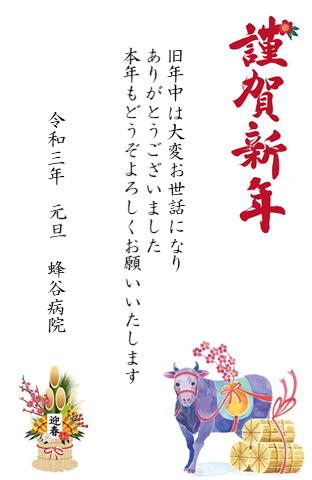 謹賀新年
旧年中は大変お世話になり
ありがとうございました
本年もどうぞよろしくお願いいたします
令和三年　元旦　蜂谷病院
迎春